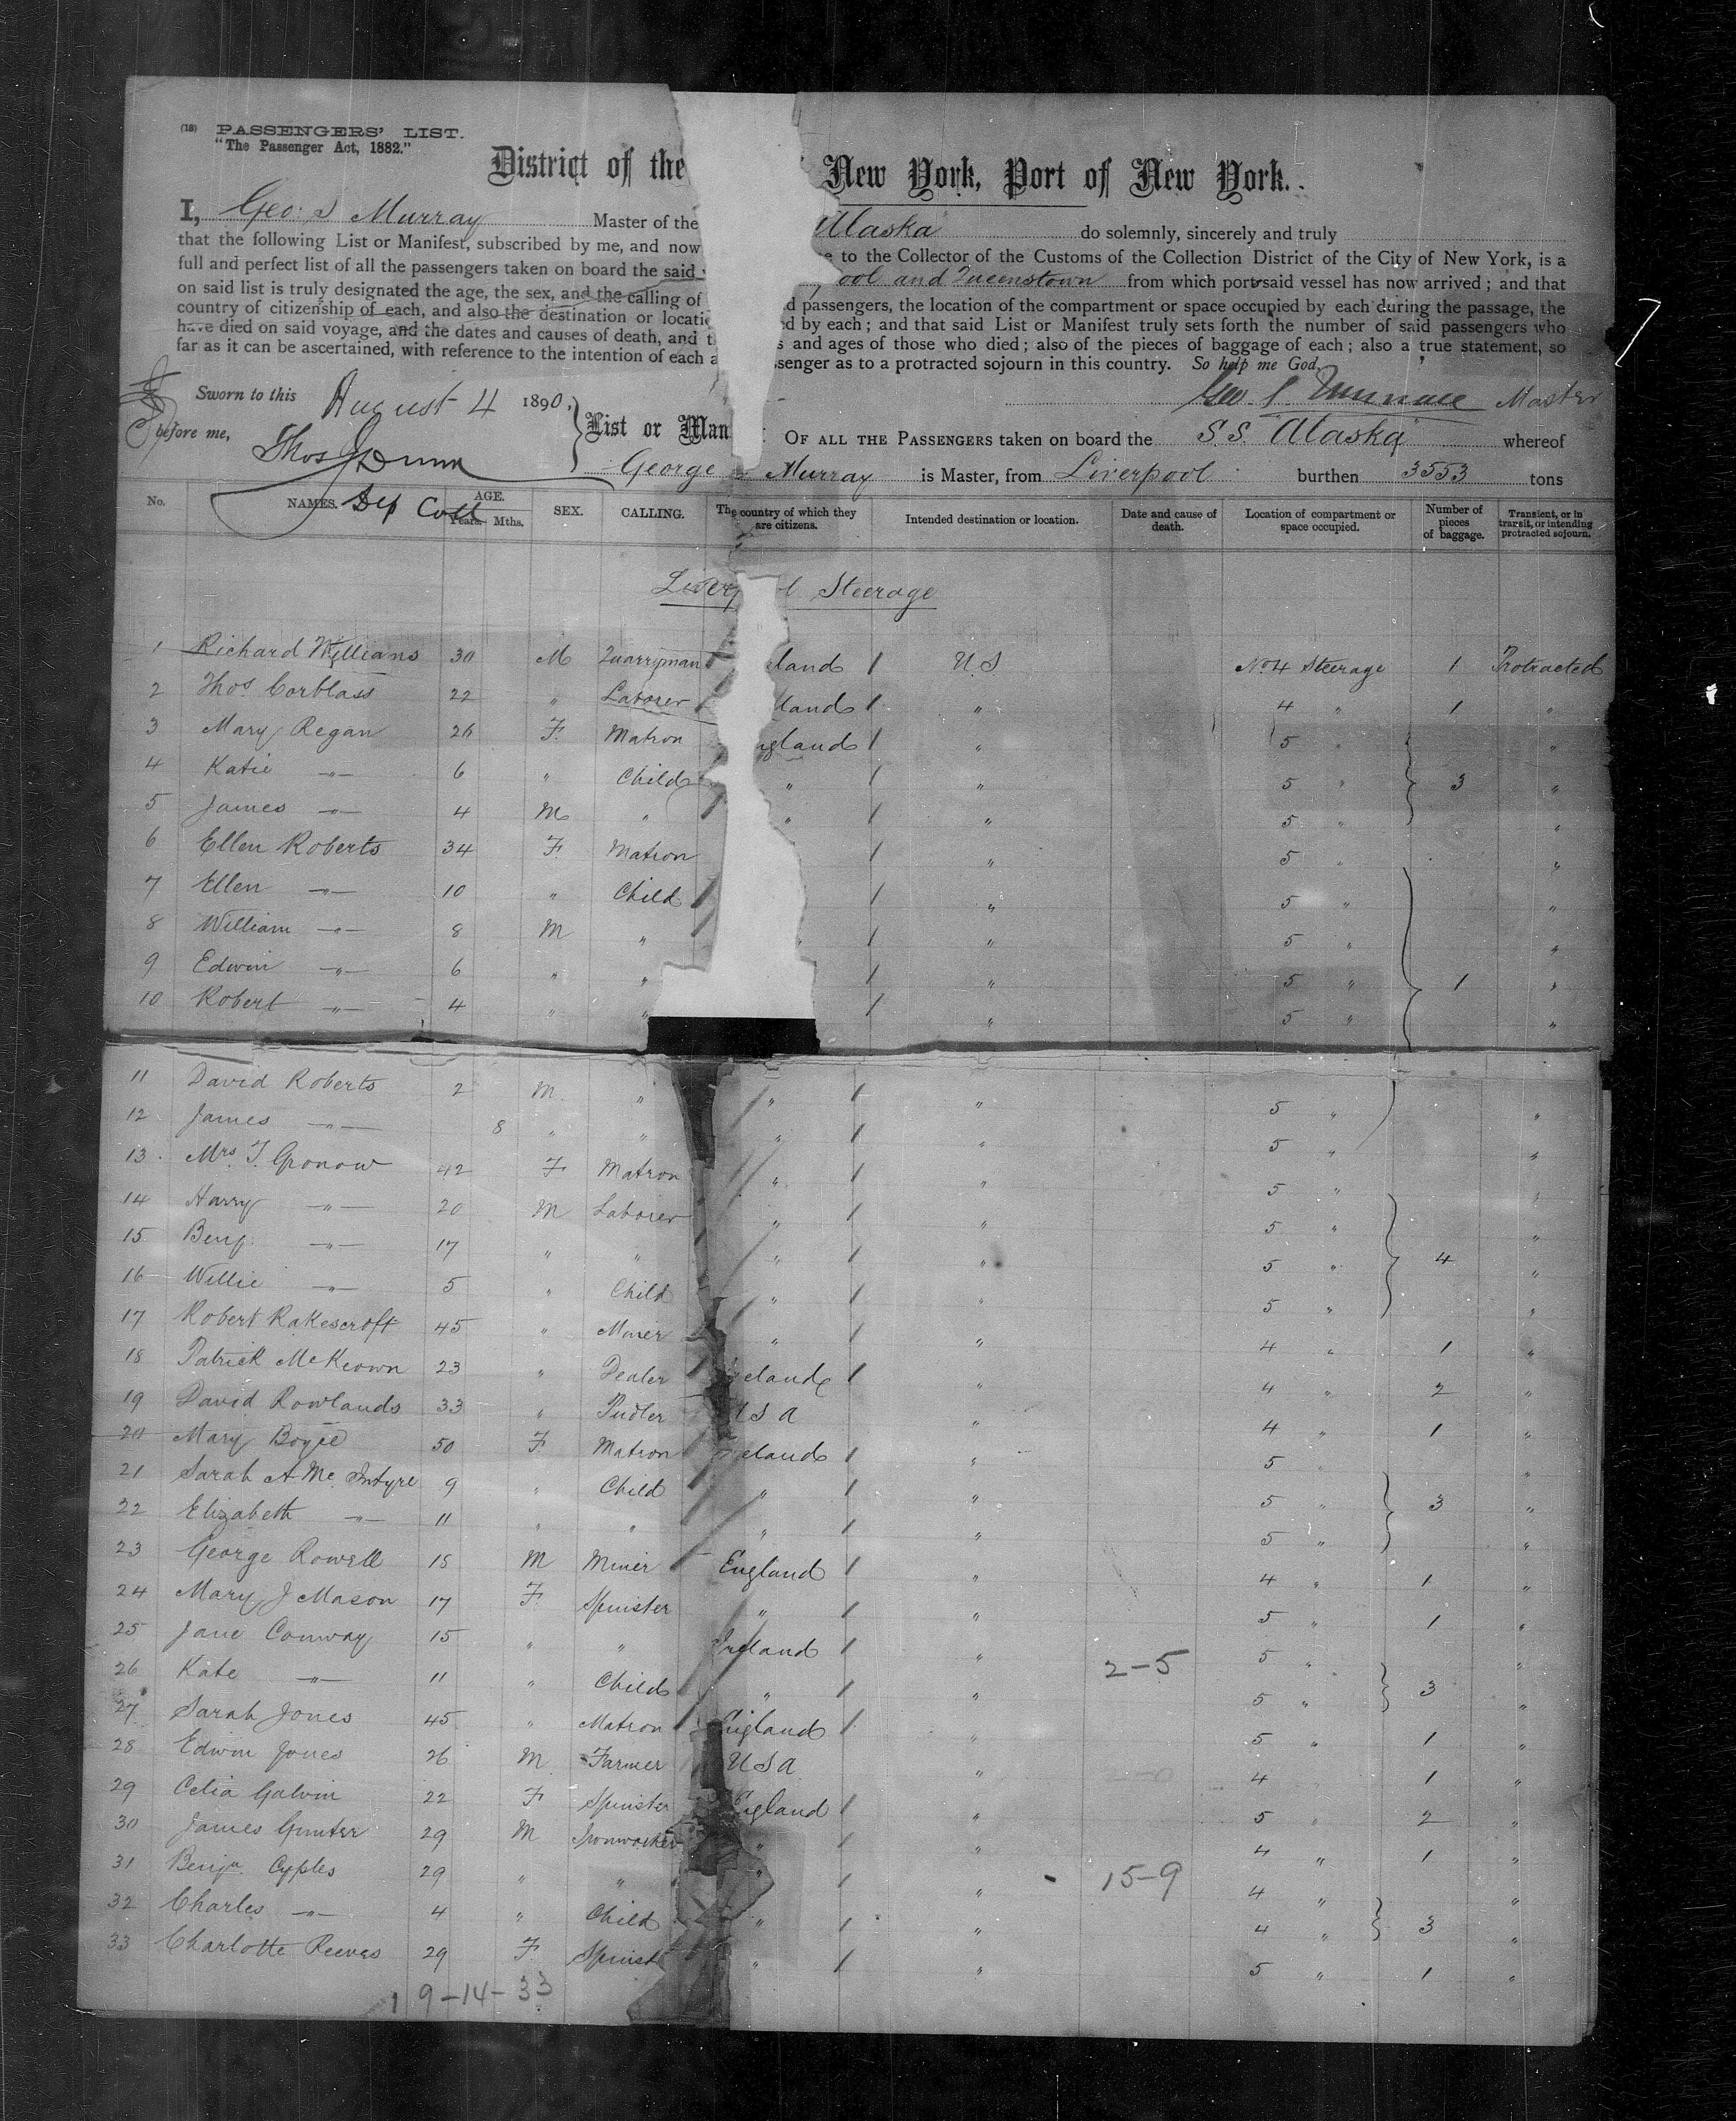 (18) PASSENGERS' LIST.
"The Passenger Act, 1882."
District of the New York, Port of New York.
I, Geo. S Murray Master of the Alaska do solemnly, sincerely and truly
that the following List or Manifest, subscribed by me, and now to the Collector of the Customs of the Collection District of the City of New York, is a
full and perfect list of all the passengers taken on board the said ool and Queenstown from which port said vessel has now arrived; and that
on said list is truly designated the age, the sex, and the calling of passengers, the location of the compartment or space occupied by each during the passage, the
country of citizenship of each, and also the destination or by each; and that said List or Manifest truly sets forth the number of said passengers who
have died on said voyage, and the dates and causes of death, and and ages of those who died; also of the pieces of baggage of each; also a true statement, so
far as it can be ascertained, with reference to the intention of each ssenger as to a protracted sojourn in this country. So help me God,
Sworn to this August 4 1890, Geo. S. Murray Master
before me, Thos Dunn
Dep Coll
List or Man OF ALL THE PASSENGERS taken on board the S.S. "Alaska" whereof
George S Murray is Master, from Liverpool burthen 3553 tons
No. NAMES. AGE. Years. Mths. SEX. CALLING. The country of which they are citizens. Intended destination or location. Date and cause of death. Location of compartment or space occupied. Number of pieces of baggage. Transient, or in transit, or intending protracted sojourn.
Liverp l Steerage
1 Richard Williams 30 M Quarryman land / U.S No 4 Steerage 1 Protracted
2 Thos Corblass 22 " Laborer land / " 4 " 1 "
3 Mary Regan 26 F. Matron ngland / " 5 " "
4 Katie —"— 6 " Child " / " 5 " 3 "
5 James —"— 4 M " " / " 5 " "
6 Ellen Roberts 34 F. Matron / " 5 " "
7 Ellen —"— 10 " Child / " 5 " "
8 William —"— 8 M " " / " 5 " "
9 Edwin —"— 6 " " / " 5 " 1 "
10 Robert —"— 4 " " / " 5 " "
11 David Roberts 2 M. " " / " 5 " "
12 James —"— 8 " " " / " 5 " "
13 Mrs. T. Gronow 42 F Matron " / " 5 " "
14 Harry —"— 20 M Laborer " / " 5 " "
15 Benj. —"— 17 " " " / " 5 " 4 "
16 Willie —"— 5 " Child " / " 5 " "
17 Robert Rakescroft 45 " Miner " / " 4 " 1 "
18 Patrick McKeown 23 " Dealer eland / " 4 " 2 "
19 David Rowlands 33 " Pudler U S A " 4 " 1 "
20 Mary Bogie 50 F. Matron Ireland / " 5 " "
21 Sarah A McIntyre 9 " Child " / " 5 " 3 "
22 Elizabeth —"— 11 " " " / " 5 " "
23 George Rowell 18 M Miner England / " 4 " 1 "
24 Mary J Mason 17 F Spinster " / " 5 " 1 "
25 Jane Conway 15 " " Ireland / " 5 " "
26 Kate —"— 11 " Child " / " 2-5 5 " 3 "
27 Sarah Jones 45 " Matron England / " 5 " 1 "
28 Edwin Jones 26 M Farmer U S A " 4 " 1 "
29 Celia Galvin 22 F Spinster England / " 5 " 2 "
30 James Gunter 29 M Ironworker " / " 4 " 1 "
31 Benjn. Cyples 29 " " " / " 15-9 4 " "
32 Charles —"— 4 " Child " / " 4 " 3 "
33 Charlotte Reeves 29 F Spinst " / " 5 " 1 "
1 9-14-33